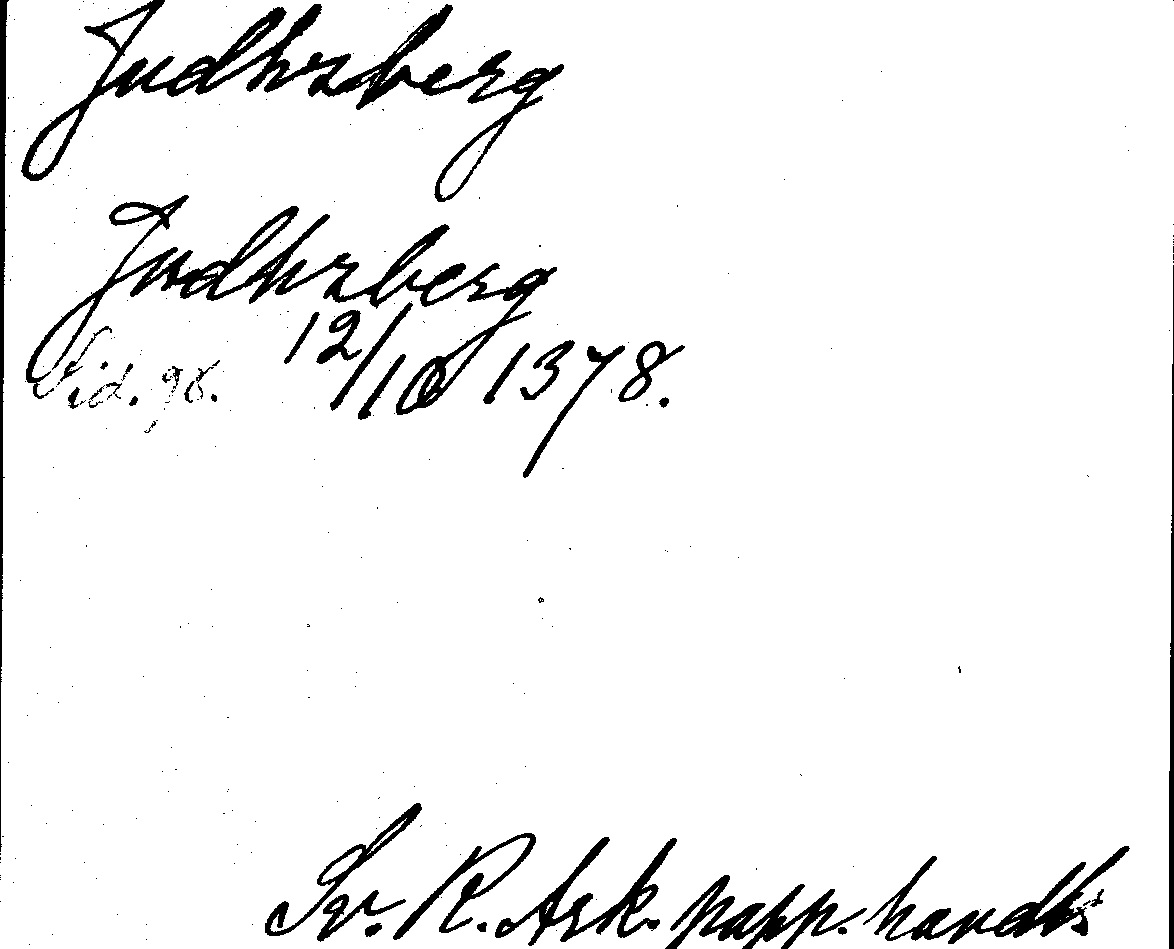 Judhrsberg
Judhrsberg
Sid. 98. 12/10 1378.
Sv. R. Ark. papp. handl.